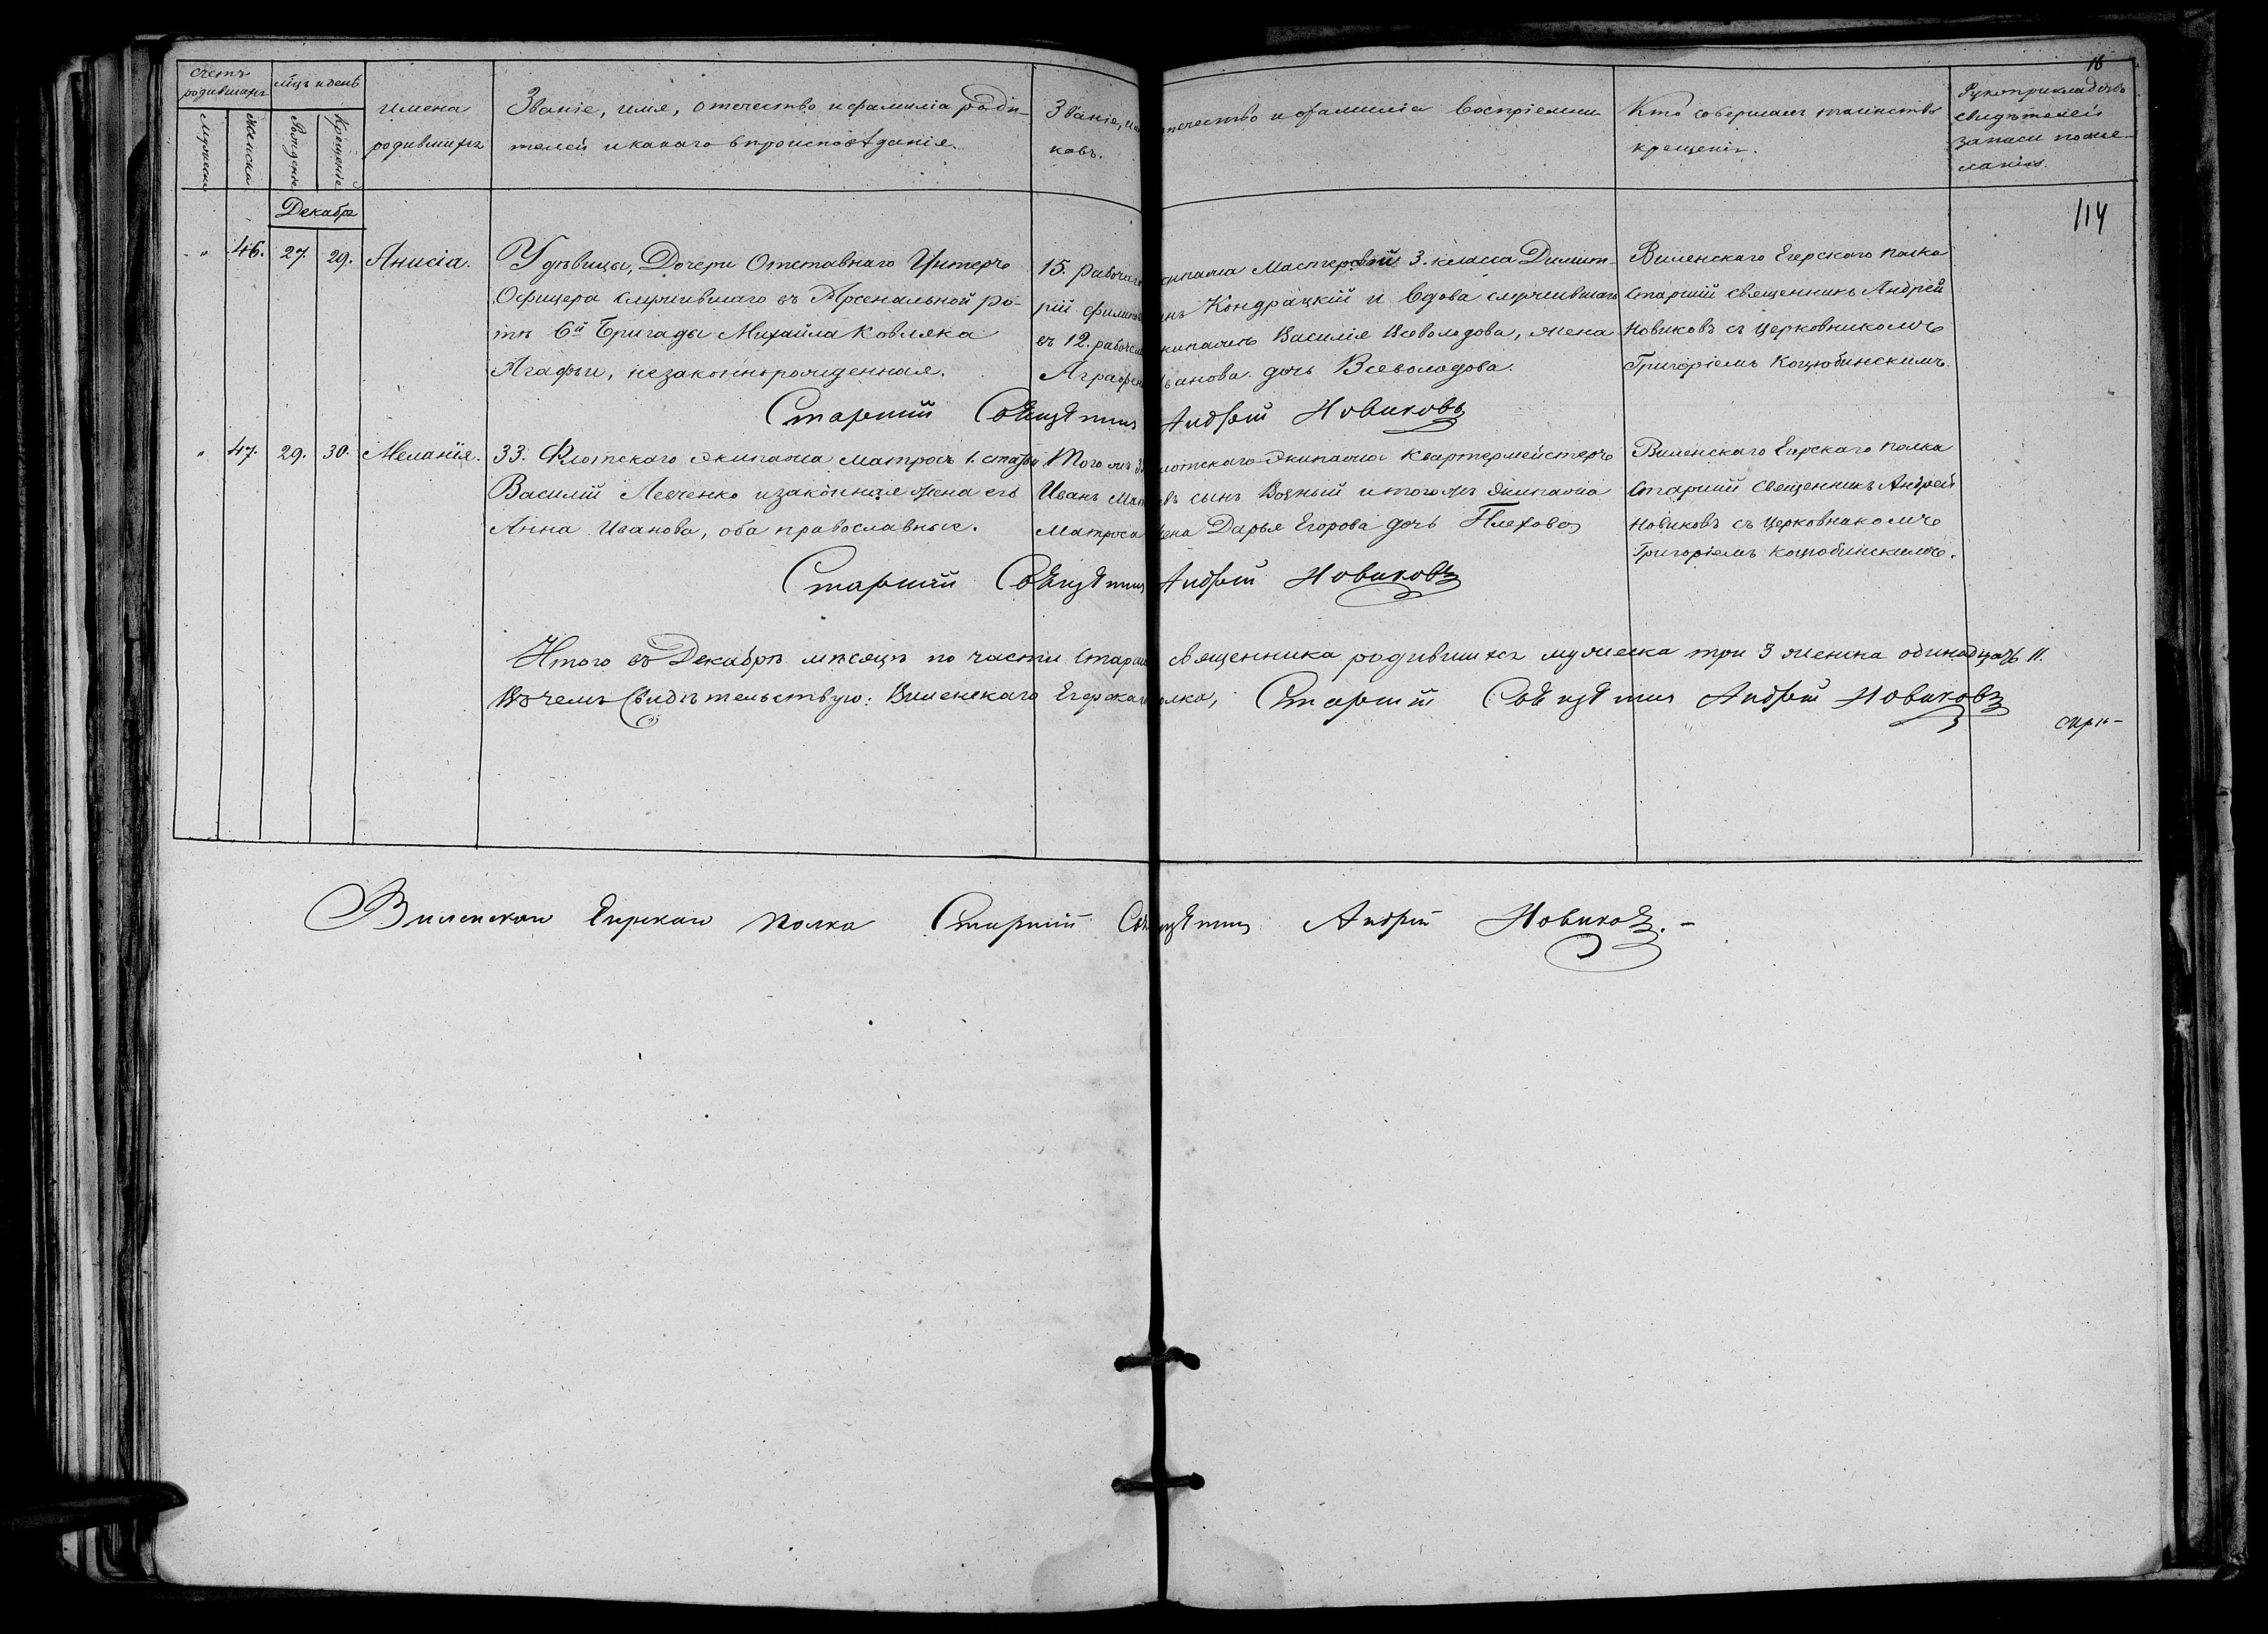 16
счетъ родившихъ
мѣсцъ и день
Мужеска
Женска
Рожденіе
Крещеніе
имена родившихъ
Званіе, имя, отечество и фамилія роди-
телей и какаго вѣроисповѣданія.
Званіе, имя отечество и фамилія воспріемни
ковъ.
Кто совершалъ таинство
крещенія.
Рукоприкладство
свидѣтелей
записи по же-
ланію.
114
Декабрь
" 46. 27. 29. Анисіа.
У дѣвицы, Дочери Отставнаго Унтеръ
Офицера служившаго въ Арсенальной ро-
тѣ 6й Бригады Михайла Ковляка
Агафьи, незаконнорожденная.
15. рабочаго экипажа Мастеровый 3. класса Димит-
рій Филиповъ сынъ Кондрацкій и Вдова служившаго
въ 12. рабочемъ экипажѣ Василія Всеволодова, жена
Аграфена Иванова дочь Всеволодова.
Виленскаго Егерскаго полка
Старшій священникъ Андрей
Новиковъ съ Церковникомъ
Григоріемъ Коцюбинскимъ.
Старшій Священникъ Андрей Новиковъ
" 47. 29. 30. Меланія.
33. Флотскаго экипажа матросъ 1. статьи
Василій Левченко и законная жена его
Анна Иванова, оба православные.
Того жъ 33 флотскаго экипажа квартермейстеръ
Иванъ сынъ Возный и того жъ экипажа
матроса жена Дарья Егорова дочь Плехова
Виленскаго Егерскаго полка
Старшій Священникъ Андрей
Новиковъ съ Церковникомъ
Григоріемъ Коцюбинскимъ.
Старшій Священникъ Андрей Новиковъ
Итого въ Декабрѣ мѣсяцѣ по части Старшаго священника родившихся мужеска три 3 женска одинадцать 11.
Въ чемъ Свидѣтельствую: Виленскаго Егерскаго полка, Старшій Священникъ Андрей Новиковъ
Виленскаго Егерскаго полка Старшій Священникъ Андрей Новиковъ. –